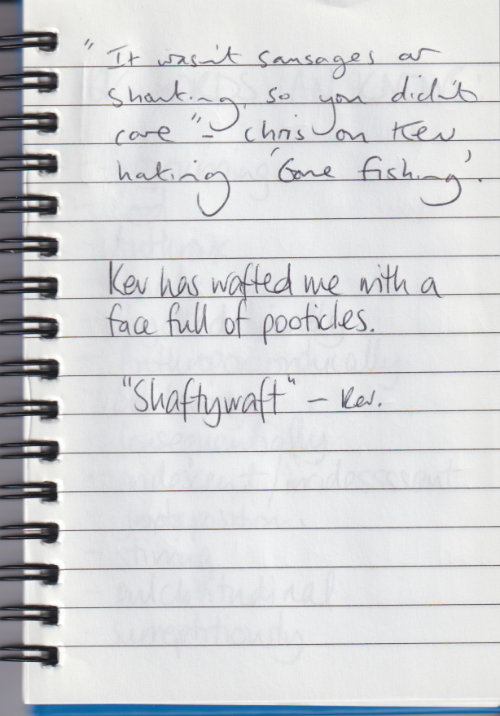 "It wasn't sausages or
shouting, so you didn't
care" - Chris on Kev
hating 'Gone Fishing'.
Kev has wafted me with a
face full of pooticles.
"Shaftywaft" - Kev.